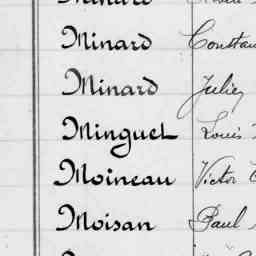 Minard
Minard Constan
Minard Julien
Minguet Louis
Moineau Victor
Moisan Paul